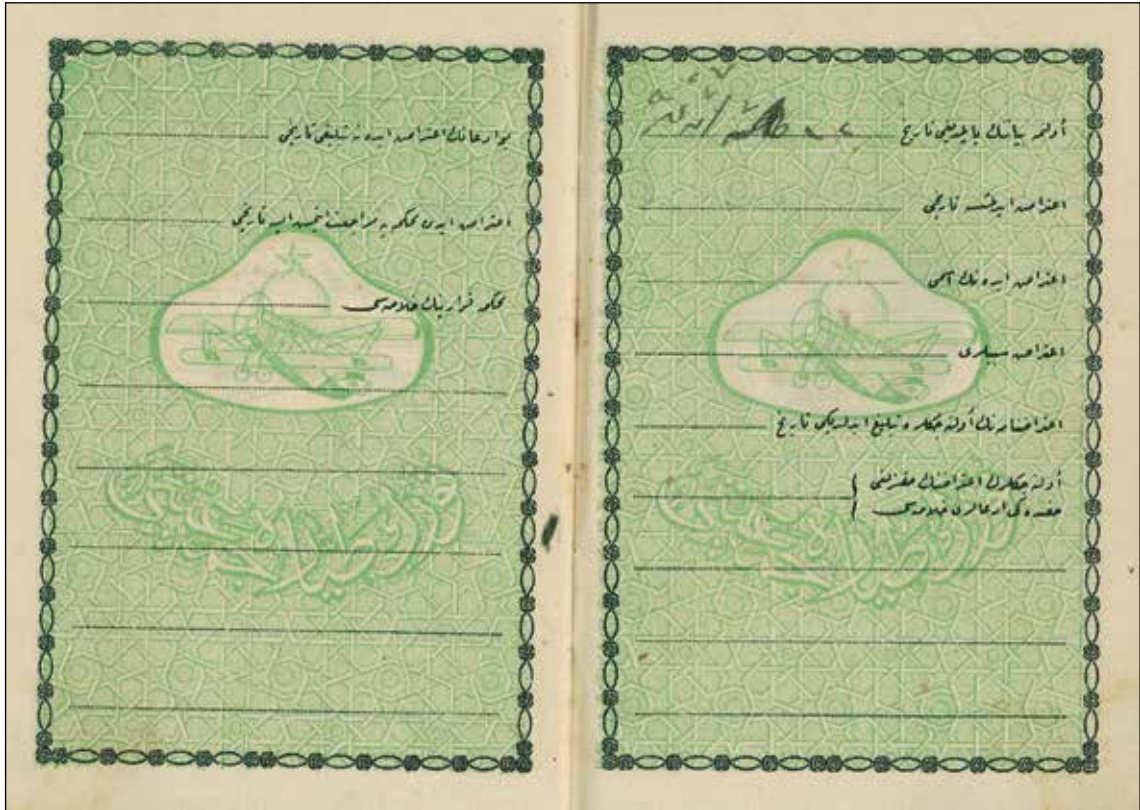 أولنمه بياننك ياپيلديغى تاريخ
اعتراض ايديلمشسه تاريخى
اعتراض ايده نك اسمى
اعتراض سببلرى
اعتراضنامه نك أولنه جكلره تبليغ ايديلديكى تاريخ
أولنه جكلرك اعتراضك حقسزلغى
حقنده كى ادعالرى خلاصه سى
بو ادعانك اعتراض ايده نه تبليغى تاريخى
اعتراض ايدن محكمه يه مراجعت ايتمش ايسه تاريخى
محكمه قرارينك خلاصه سى